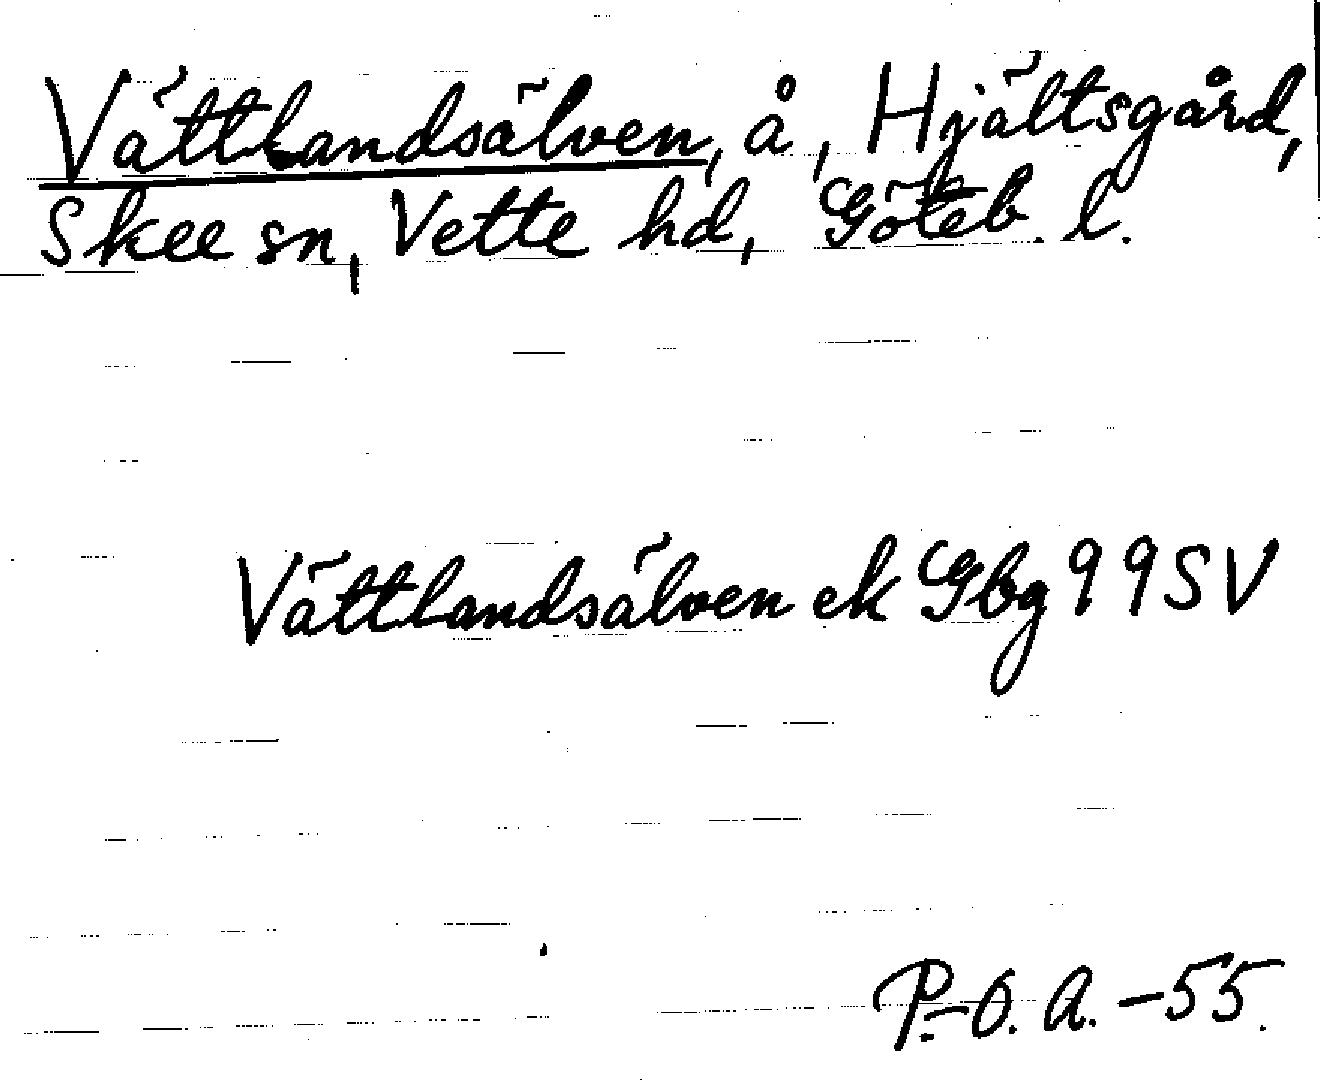 Vättlandsälven, å, Hjältsgård,
Skee sn, Vette hd, Göteb. l.
Vättlandsälven ek Gbg 99 SV
P.-O. A. -55.